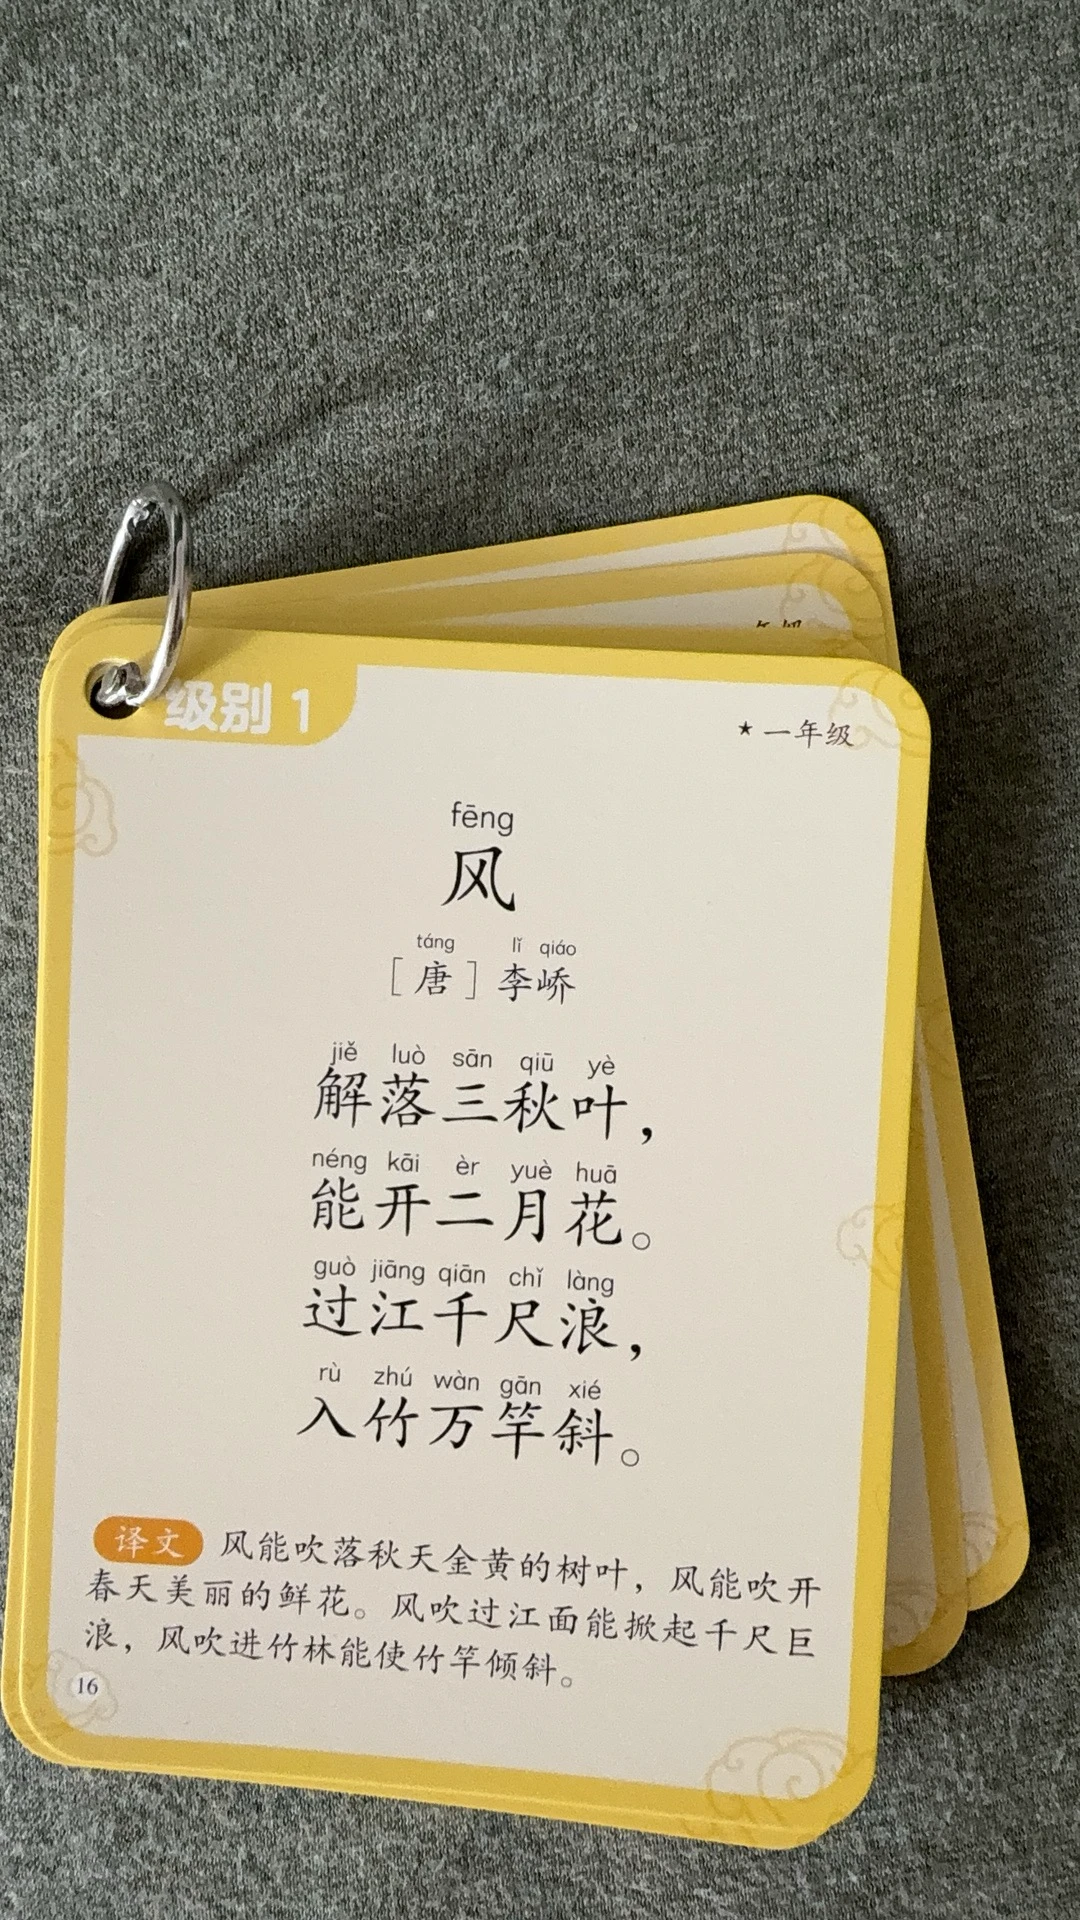 级别 1
★ 一年级
fēng
风
táng lǐ qiáo
［唐］李峤
jiě luò sān qiū yè
解落三秋叶，
néng kāi èr yuè huā
能开二月花。
guò jiāng qiān chǐ làng
过江千尺浪，
rù zhú wàn gān xié
入竹万竿斜。
译文 风能吹落秋天金黄的树叶，风能吹开
春天美丽的鲜花。风吹过江面能掀起千尺巨
浪，风吹进竹林能使竹竿倾斜。
16